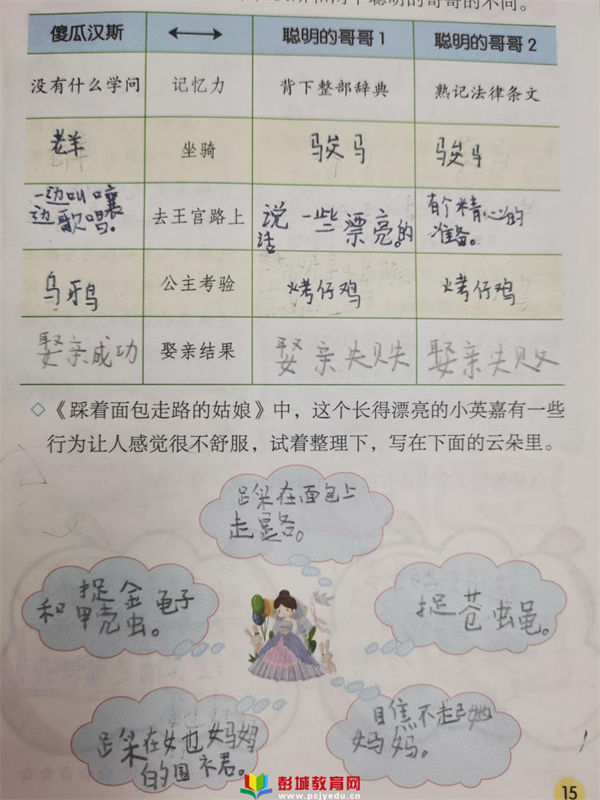 的不同。
傻瓜汉斯 聪明的哥哥1 聪明的哥哥2
没有什么学问 记忆力 背下整部辞典 熟记法律条文
老羊 坐骑 骏马 骏马
一边叫嚷 去王宫路上 说一些漂亮的 有个精心的
边歌唱。 话。 准备。
乌鸦 公主考验 烤仔鸡 烤仔鸡
娶亲成功 娶亲结果 娶亲失败 娶亲失败
◇《踩着面包走路的姑娘》中，这个长得漂亮的小英嘉有一些
行为让人感觉很不舒服，试着整理下，写在下面的云朵里。
踩在面包上
走
捉金龟子
和甲壳虫。
捉苍蝇。
踩在她妈妈
的围
瞧不起她
妈妈。
15
彭城教育网
www.pcjyedu.cn